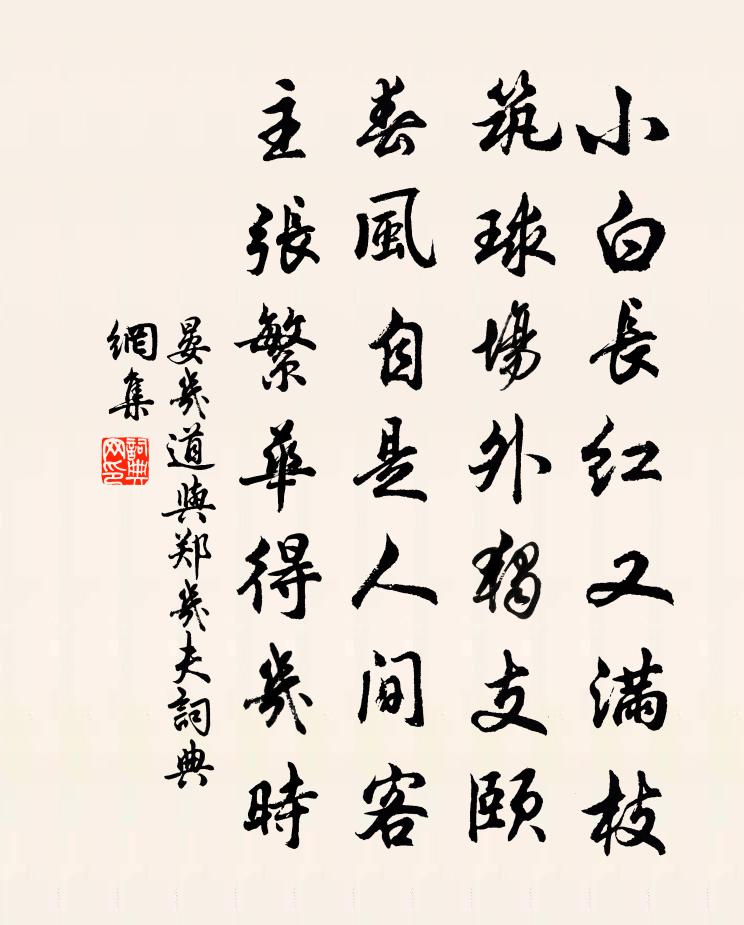 小白長紅又滿枝
筑球場外獨支頤
春風自是人間客
主張繁華得幾時
晏幾道與郑幾夫詞典
網集
詞典
网印